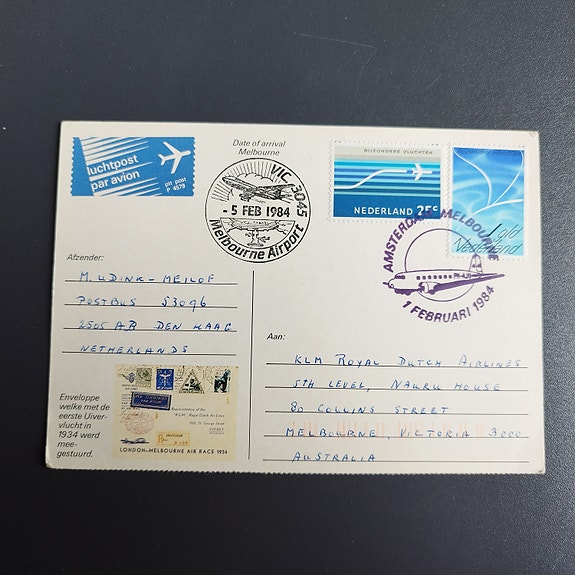 luchtpost
par avion
ptt post
P 4579
Date of arrival
Melbourne
VIC. 3045
- 5 FEB 1984
Melbourne Airport
BIJZONDERE VLUCHTEN
NEDERLAND 25c
1 gld
Nederland
AMSTERDAM MELBOURNE
1 FEBRUARI 1984
Afzender:
M. UDINK - MEILOF
POSTBUS 53096
2505 AB DEN HAAG
NETHERLANDS
Aan:
KLM ROYAL DUTCH AIRLINES
5TH LEVEL, NAURU HOUSE
80 COLLINS STREET
MELBOURNE, VICTORIA 3000
AUSTRALIA
Enveloppe
welke met de
eerste Uiver-
vlucht in
1934 werd
mee-
gestuurd.
Representative of the
"K.L.M." Royal Dutch Air Lines
George Street
LONDON-MELBOURNE AIR RACE 1934